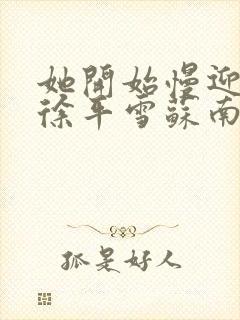 她開始慢迎
徐平雪蘇南
孤是好人